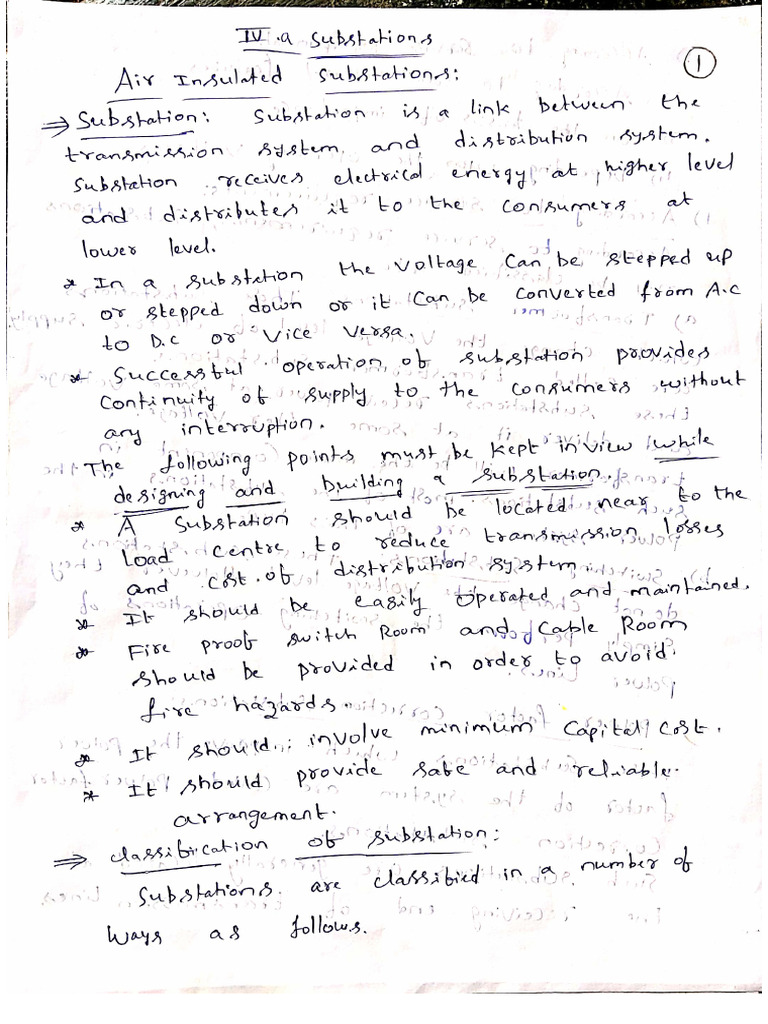 IV.a Substations
1
Air Insulated Substations:
⇒ Substation: Substation is a link between the
transmission system and distribution system.
Substation receives electrical energy at higher level
and distributes it to the consumers at
lower level.
* In a substation the voltage can be stepped up
or stepped down or it can be converted from A.c
to D.c or vice versa.
* Successful operation of substation provides
continuity of supply to the consumers without
any interruption.
The following points must be kept in view while
designing and building a substation.
* A Substation should be located near to the
Load centre, to reduce transmission losses
and cost of distribution system.
* It should be easily operated and maintained.
* Fire proof switch Room and Cable Room
should be provided in order to avoid
fire hazards.
* It should involve minimum capital cost.
* It should provide safe and reliable
arrangement.
⇒ classification of substation:
Substations are classified in a number of
ways as follows.